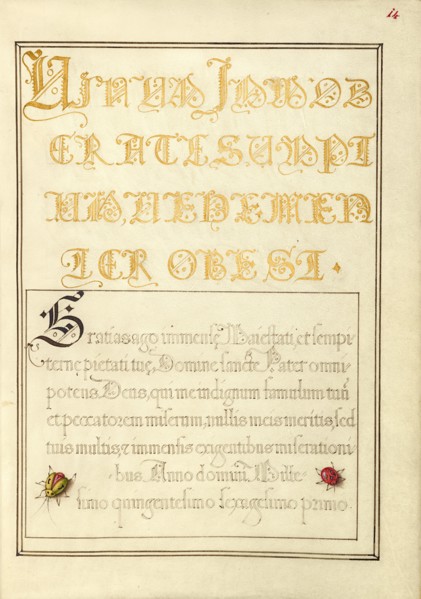 14
VINUM IMMOD
ERATE SUMPT
UM, VEHEMEN
TER OBEST.
Gratias ago immensę Maiestati, et sempi
ternę pietati tuę, Domine sancte Pater omni-
potens Deus, qui me indignum famulum tuū
et peccatorem miserum, nullis meis meritis, sed
tuis multis, & immensis exigentibus miserationi-
bus. Anno domini Mille-
simo quingentesimo sexagesimo primo.